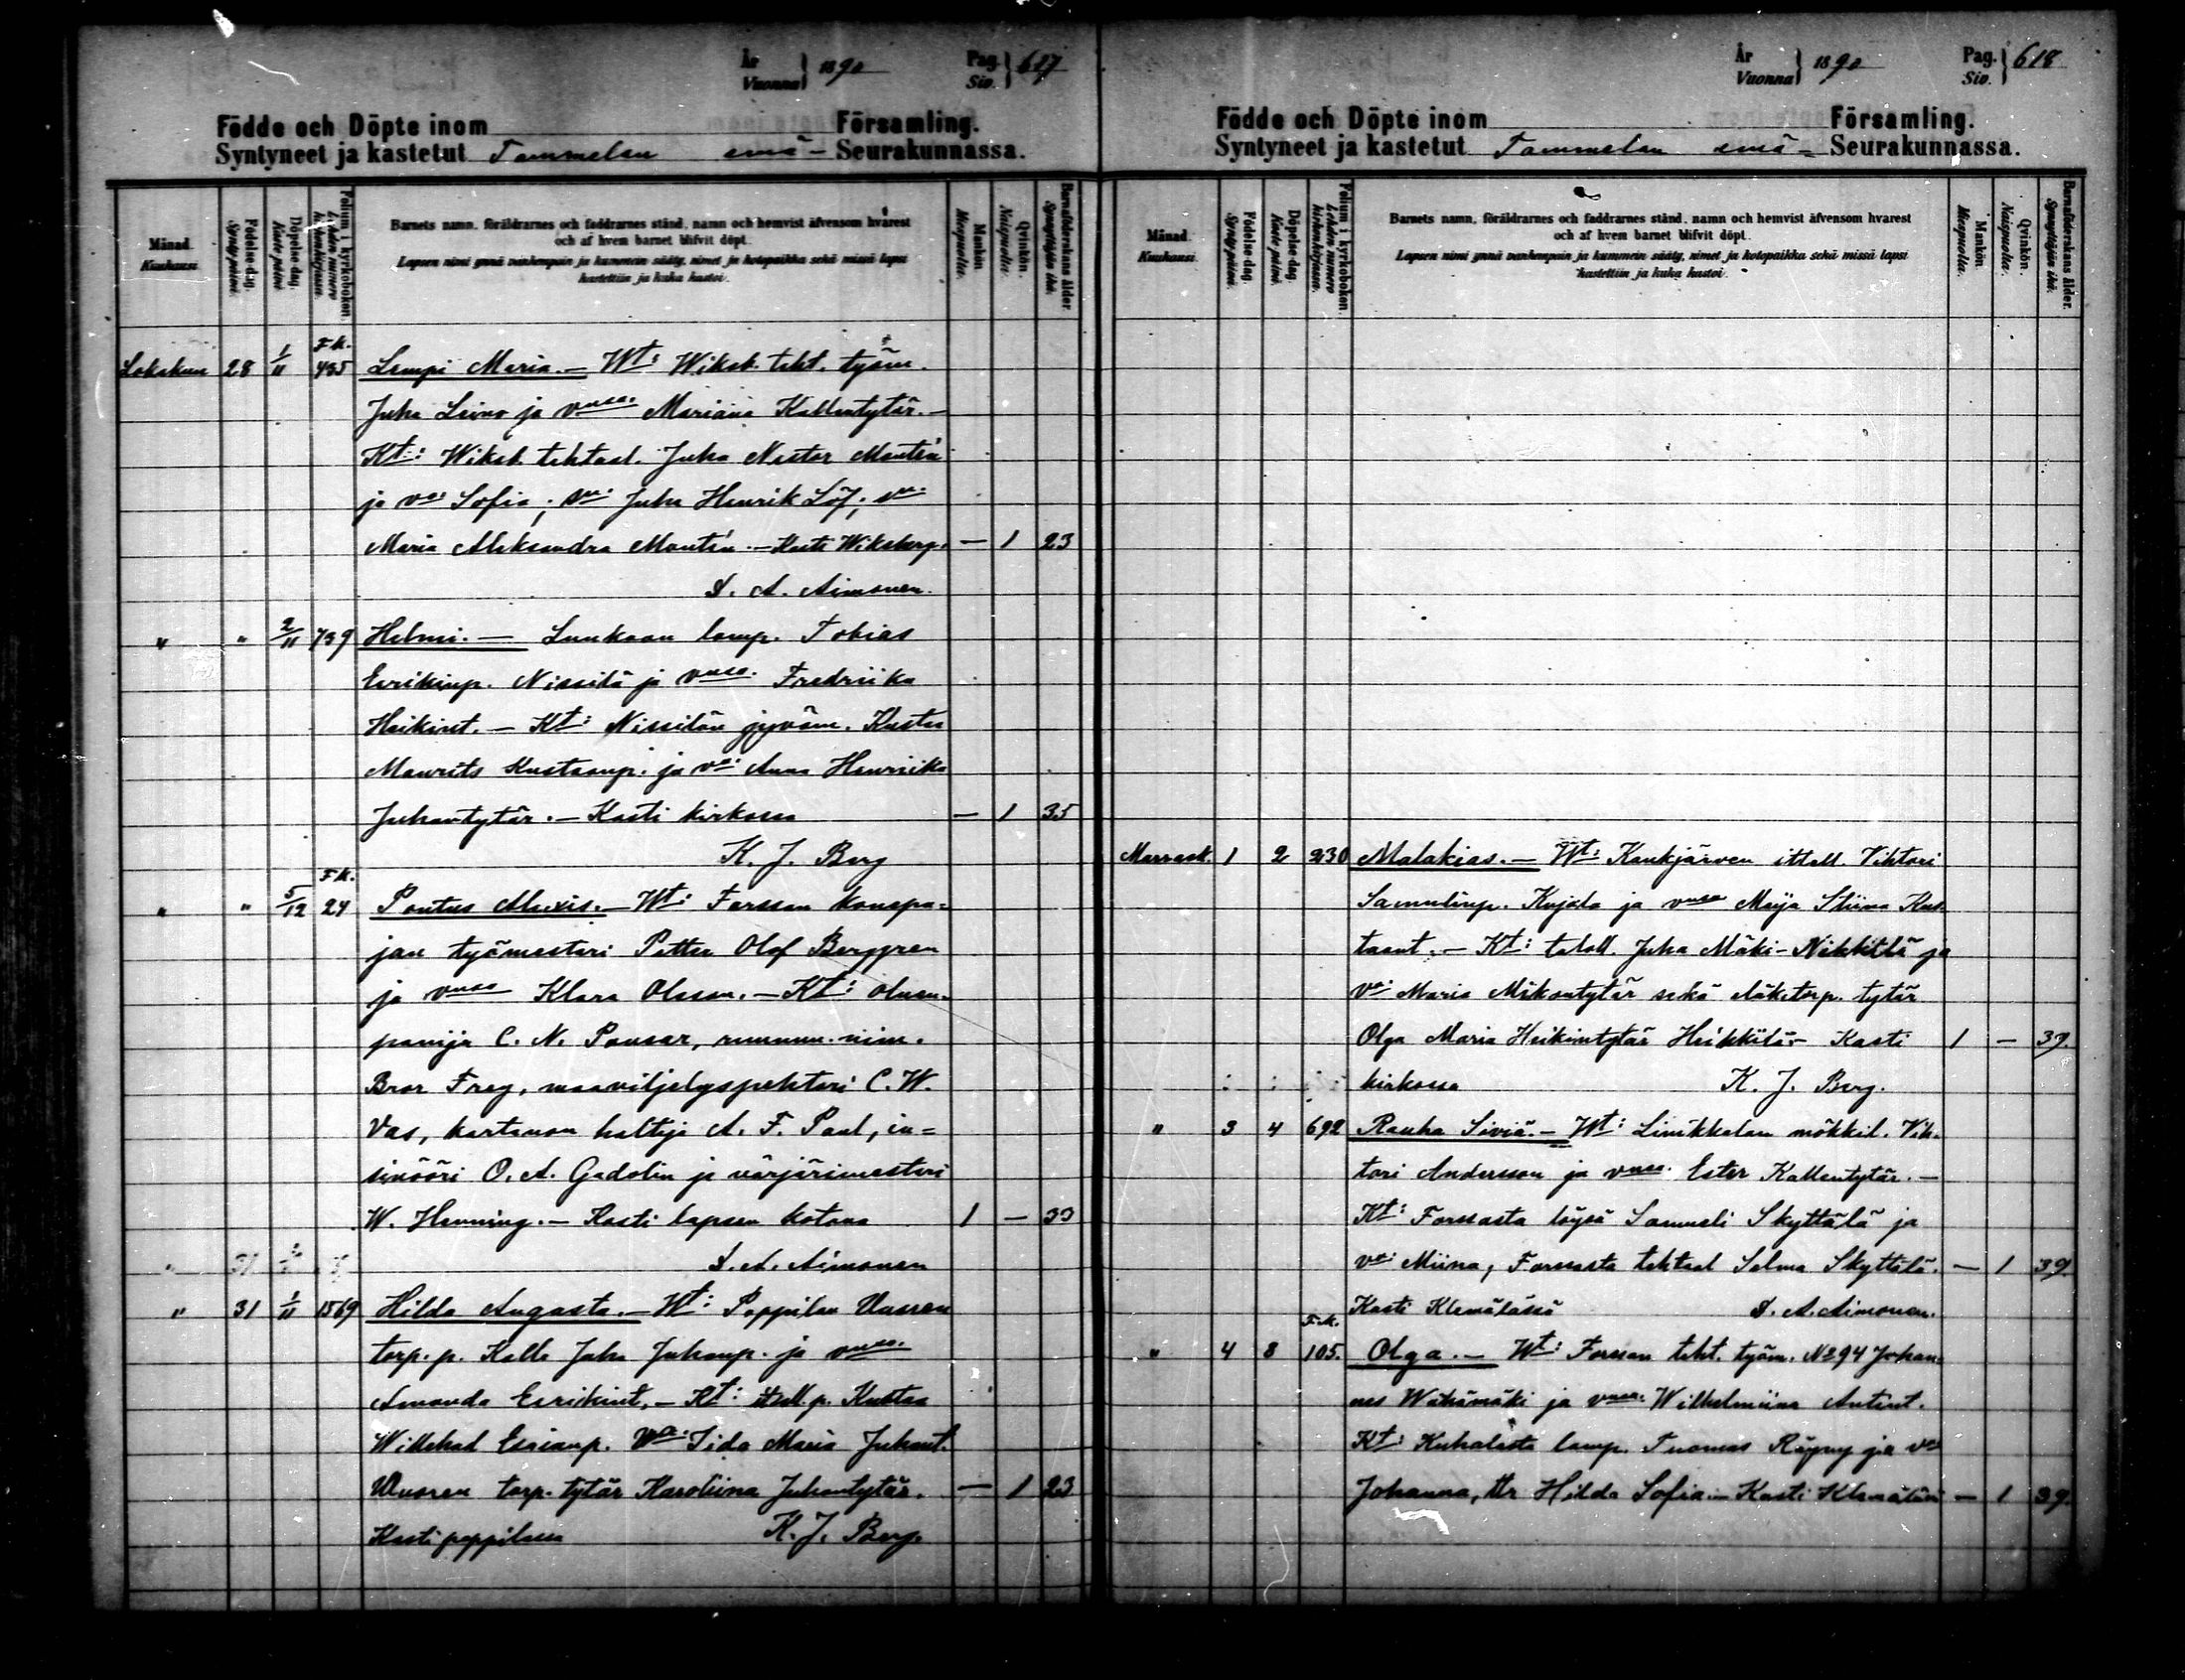 År
Vuonna } 1890
Pag.
Siv. } 617
Födde och Döpte inom Församling.
Syntyneet ja kastetut Tammelan emä- Seurakunnassa.
Månad.
Kuukausi.
Födelse dag.
Synty päivä.
Döpelse dag.
Kaste päivä.
Folium i kyrkobokon.
Lehden numero
kirkonkirjassa.
Barnets namn, föräldrarnes och faddrarnes stånd, namn och hemvist äfvensom hvarest
och af hvem barnet blifvit döpt.
Lapsen nimi ynnä vanhempain ja kummein sääty, nimet ja kotopaikka sekä missä lapsi
kastettiin ja kuka kastoi.
Mankön.
Miespuolta.
Qvinkön.
Naispuolta.
Barnaföderskans ålder.
Synnyttäjän ikä.
F.K.
Lokakuu 28 1/11 435 Lempi Maria. — Wt: Wiksb. teht. työm.
Juho Leino ja vmsa. Mariana Kallentytär. —
Kt: Wiksb. tehtaal. Juho Nestor Montén
ja va: Sofia; Juho Henrik Löf;
Maria Aleksandra Montén. — Kasti Wiksberg. — 1 23
S. A. Aimonen.
" " 2/11 739 Helmi. — Lunkaan lamp. Tobias
Eerikinp. Nissilä ja vmsa. Fredriika
Heikint. — Kt: Nissilän jyväm. Kustaa
Maurits Kustaanp. ja va: Anna Henriika
Juhontytär. — Kasti kirkossa — 1 35
K. J. Berg
F.K.
" " 5/12 24 Pontus Alexis. — Wt: Forssan konepa-
jan työmestari Petter Olof Berggren
ja vmsa Klara Olsson. — Kt: oluen-
panija C. N. Pousar, nim.
Bror Frey, maaviljelyspehtori C. W.
Vas, kartanon haltija A. F. Paul, in-
sinööri O. A. Gadolin ja värjärimestari
W. Henning. — Kasti lapsen kotona 1 — 33
S. A. Aimonen
" 31 1/11 1569 Hilda Augusta. — Wt: Pappilan Uusren
torp. p. Kalle Juho Juhonp. ja vmsa.
Amanda Eerikint. — Kt: itsell. p. Kustaa
Willehad Esaianp. va: Iida Maria Juhont.
Uusren torp. tytär Karoliina Juhontytär. — 1 23
Kasti pappilassa K. J. Berg.
År
Vuonna } 1890
Pag.
Siv. } 618
Födde och Döpte inom Församling.
Syntyneet ja kastetut Tammelan emä- Seurakunnassa.
Månad.
Kuukausi.
Födelse dag.
Synty päivä.
Döpelse dag.
Kaste päivä.
Folium i kyrkobokon.
Lehden numero
kirkonkirjassa.
Barnets namn, föräldrarnes och faddrarnes stånd, namn och hemvist äfvensom hvarest
och af hvem barnet blifvit döpt.
Lapsen nimi ynnä vanhempain ja kummein sääty, nimet ja kotopaikka sekä missä lapsi
kastettiin ja kuka kastoi.
Mankön.
Miespuolta.
Qvinkön.
Naispuolta.
Barnaföderskans ålder.
Synnyttäjän ikä.
Marrask. 1 2 230 Malakias. — Wt: Kaukjärven itsell. Vihtori
Samulinp. Kujala ja vmsa Maija Stiina Kus-
taant. — Kt: taloll. Juha Mäki-Nikkilä ja
va: Maria Mikontytär sekä Mäkitorp. tytär
Olga Maria Heikintytär Heikkilä. — Kasti 1 — 39.
kirkossa K. J. Berg.
" 3 4 692 Rauha Siviä. — Wt: Linikkalan mökkil. Vih-
tori Andersson ja vmsa. Ester Kallentytär. —
Kt: Forssasta löysä Samueli Skyttälä ja
va: Miina, Forssasta tehtaal Selma Skyttälä. — 1 39.
Kasti Klemälässä S. A. Aimonen.
F.K.
" 4 8 105. Olga. — Wt: Forssan teht. työm. No 94 Johan-
nes Wähämäki ja vmsa. Wilhelmiina Antint.
Kt: Kuhalasta lamp. Tuomas Räpny ja va
Johanna, ttr Hilda Sofia. — Kasti Klemälässä — 1 39.